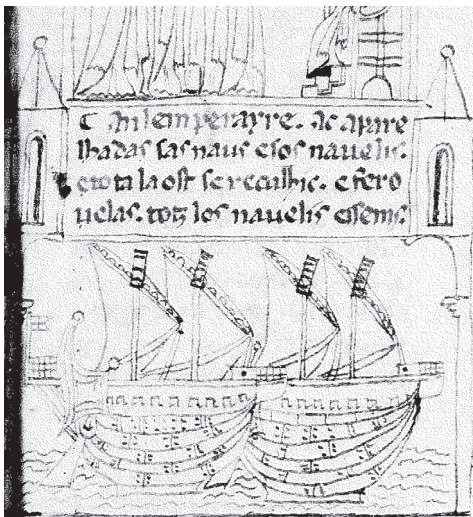 C an lemperayre. ac apare
lhadas sas naus e sos nauelis.
e tota la ost se reculhic. e fero
uelas. totz los nauelis essems.